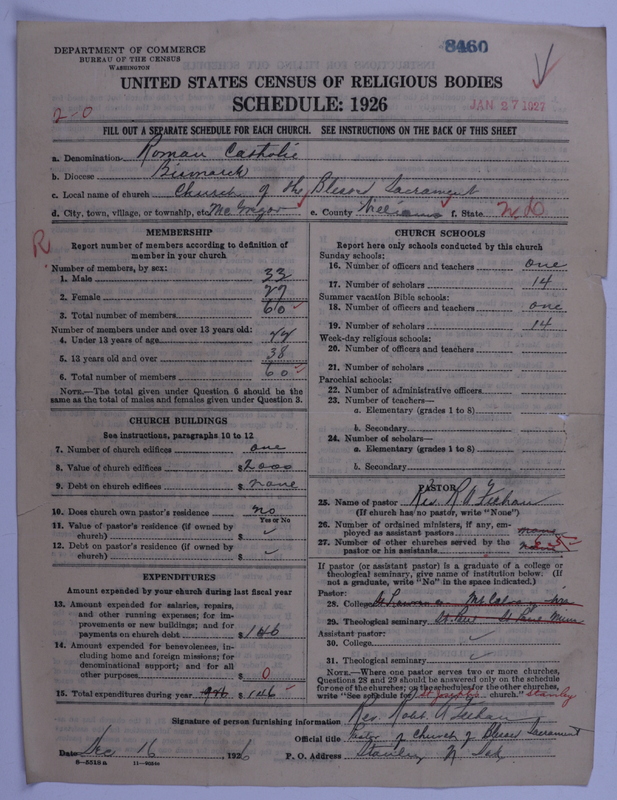 8460
DEPARTMENT OF COMMERCE
BUREAU OF THE CENSUS
WASHINGTON
UNITED STATES CENSUS OF RELIGIOUS BODIES
SCHEDULE: 1926
JAN 27 1927
2-0
FILL OUT A SEPARATE SCHEDULE FOR EACH CHURCH. SEE INSTRUCTIONS ON THE BACK OF THIS SHEET
a. Denomination Roman Catholic
b. Diocese Bismarck
c. Local name of church Church of the Blessed Sacrament
d. City, town, village, or township, etc. McGregor e. County Williams f. State N. D.
R
MEMBERSHIP
Report number of members according to definition of member in your church
Number of members, by sex:
1. Male 33
2. Female 27
3. Total number of members 60
Number of members under and over 13 years old:
4. Under 13 years of age 22
5. 13 years old and over 38
6. Total number of members 60
NOTE.—The total given under Question 6 should be the same as the total of males and females given under Question 3.
CHURCH BUILDINGS
See instructions, paragraphs 10 to 12
7. Number of church edifices one
8. Value of church edifices $2000
9. Debt on church edifices $ none
10. Does church own pastor's residence no
Yes or No
11. Value of pastor's residence (if owned by church) $
12. Debt on pastor's residence (if owned by church) $
EXPENDITURES
Amount expended by your church during last fiscal year
13. Amount expended for salaries, repairs, and other running expenses; for improvements or new buildings; and for payments on church debt $146
14. Amount expended for benevolences, including home and foreign missions; for denominational support; and for all other purposes $ 0
15. Total expenditures during year $146
CHURCH SCHOOLS
Report here only schools conducted by this church
Sunday schools:
16. Number of officers and teachers one
17. Number of scholars 14
Summer vacation Bible schools:
18. Number of officers and teachers one
19. Number of scholars 14
Week-day religious schools:
20. Number of officers and teachers
21. Number of scholars
Parochial schools:
22. Number of administrative officers
23. Number of teachers—
a. Elementary (grades 1 to 8)
b. Secondary
24. Number of scholars—
a. Elementary (grades 1 to 8)
b. Secondary
PASTOR
25. Name of pastor Rev. R A Feehan
(If church has no pastor, write "None")
26. Number of ordained ministers, if any, employed as assistant pastors none
27. Number of other churches served by the pastor or his assistants
If pastor (or assistant pastor) is a graduate of a college or theological seminary, give name of institution below: (If not a graduate, write "No" in the space indicated.)
Pastor:
28. College St Lawrence Mt Calvary Wis
29. Theological seminary St. Paul St Paul Minn
Assistant pastor:
30. College
31. Theological seminary
NOTE.—Where one pastor serves two or more churches, Questions 28 and 29 should be answered only on the schedule for one of the churches; on the schedules for the other churches, write "See schedule for St Joseph's church." Stanley
Signature of person furnishing information Rev. Robt. A Feehan
Official title Pastor of Church of Blessed Sacrament
Date Dec 16, 1926 P. O. Address Stanley N Dak
8—5518a 11—9034